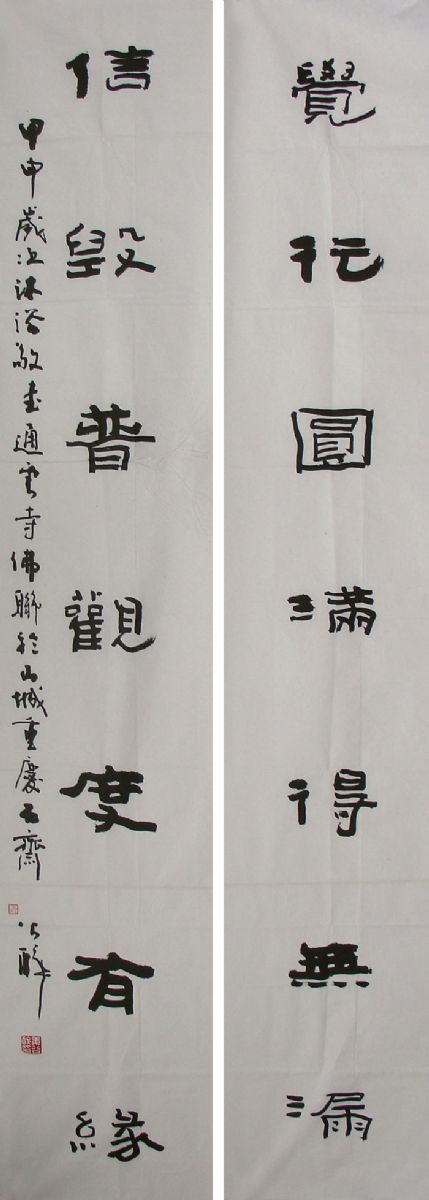 覺行圓滿得無漏
信毀普觀度有緣
甲申歲次沐浴敬書通雲寺佛聯於山城重慶石齋